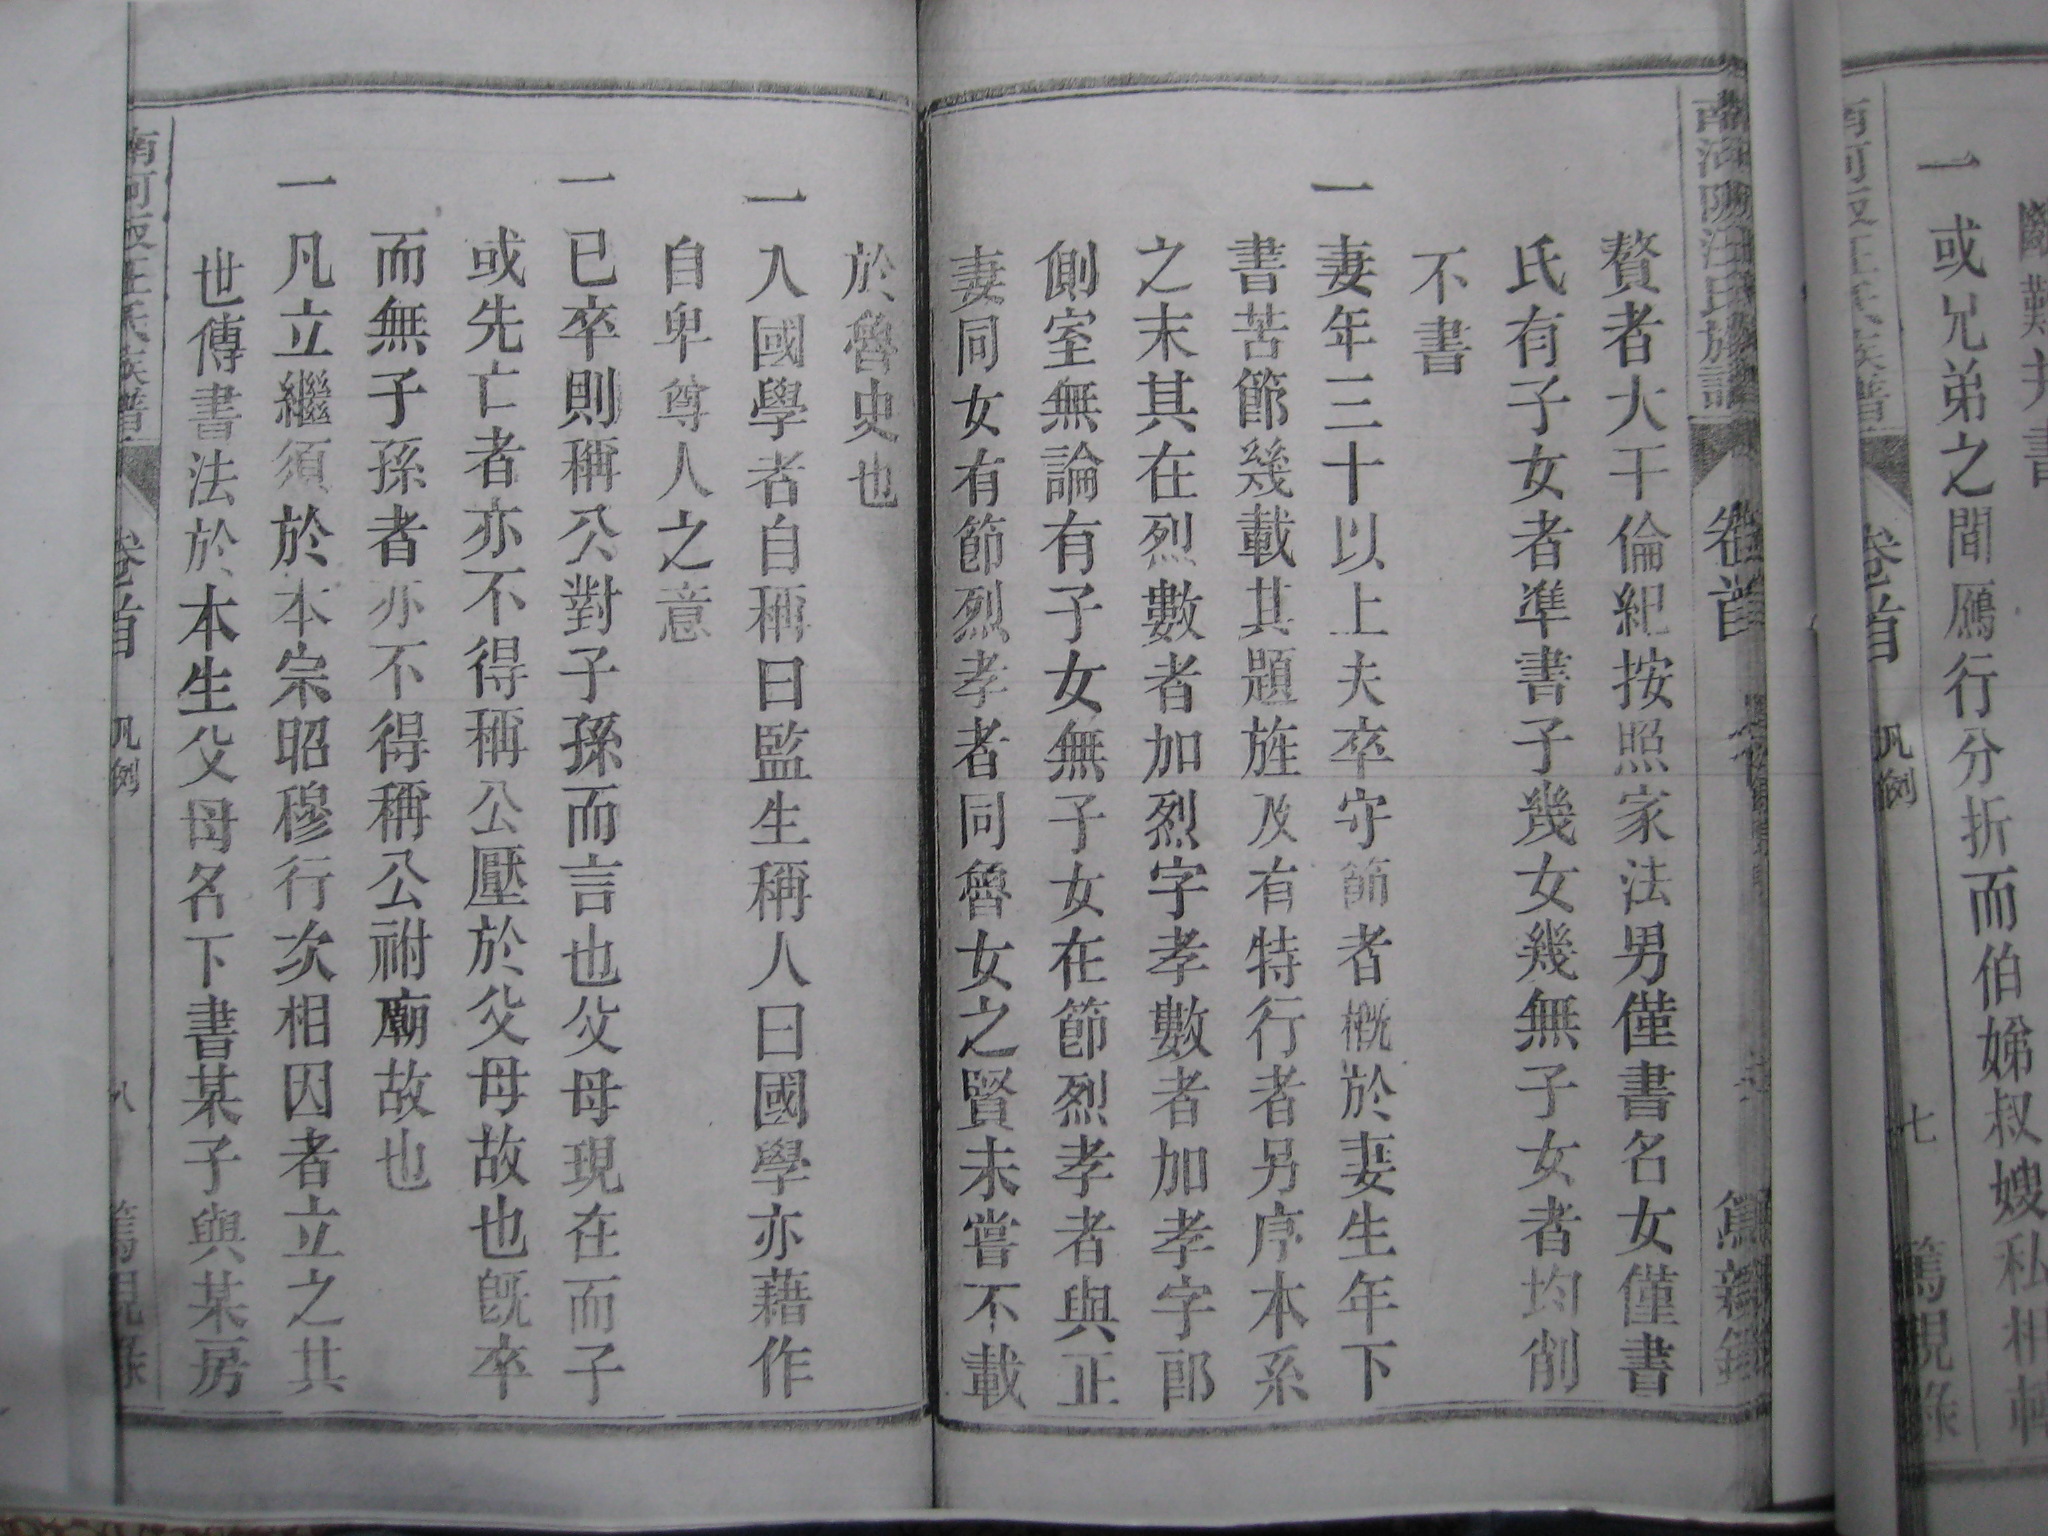 一或兄弟之間鴈行分折而伯娣叔嫂私相轉
卷首
凡例
七
篤親錄
卷首
贅者大干倫紀按照家法男僅書名女僅書
氏有子女者準書子幾女幾無子女者均削
不書
一妻年三十以上夫卒守節者概於妻生年下
書苦節幾載其題旌及有特行者另序本系
之末其在烈數者加烈字孝數者加孝字郎
側室無論有子女無子女在節烈孝者與正
妻同女有節烈孝者同魯女之賢未嘗不載
於魯史也
一入國學者自稱曰監生稱人曰國學亦藉作
自卑尊人之意
一已卒則稱公對子孫而言也父母現在而子
或先亡者亦不得稱公壓於父母故也旣卒
而無子孫者亦不得稱公祔廟故也
一凡立繼須於本宗昭穆行次相因者立之其
世傳書法於本生父母名下書某子與某房
族譜
卷首
凡例
八